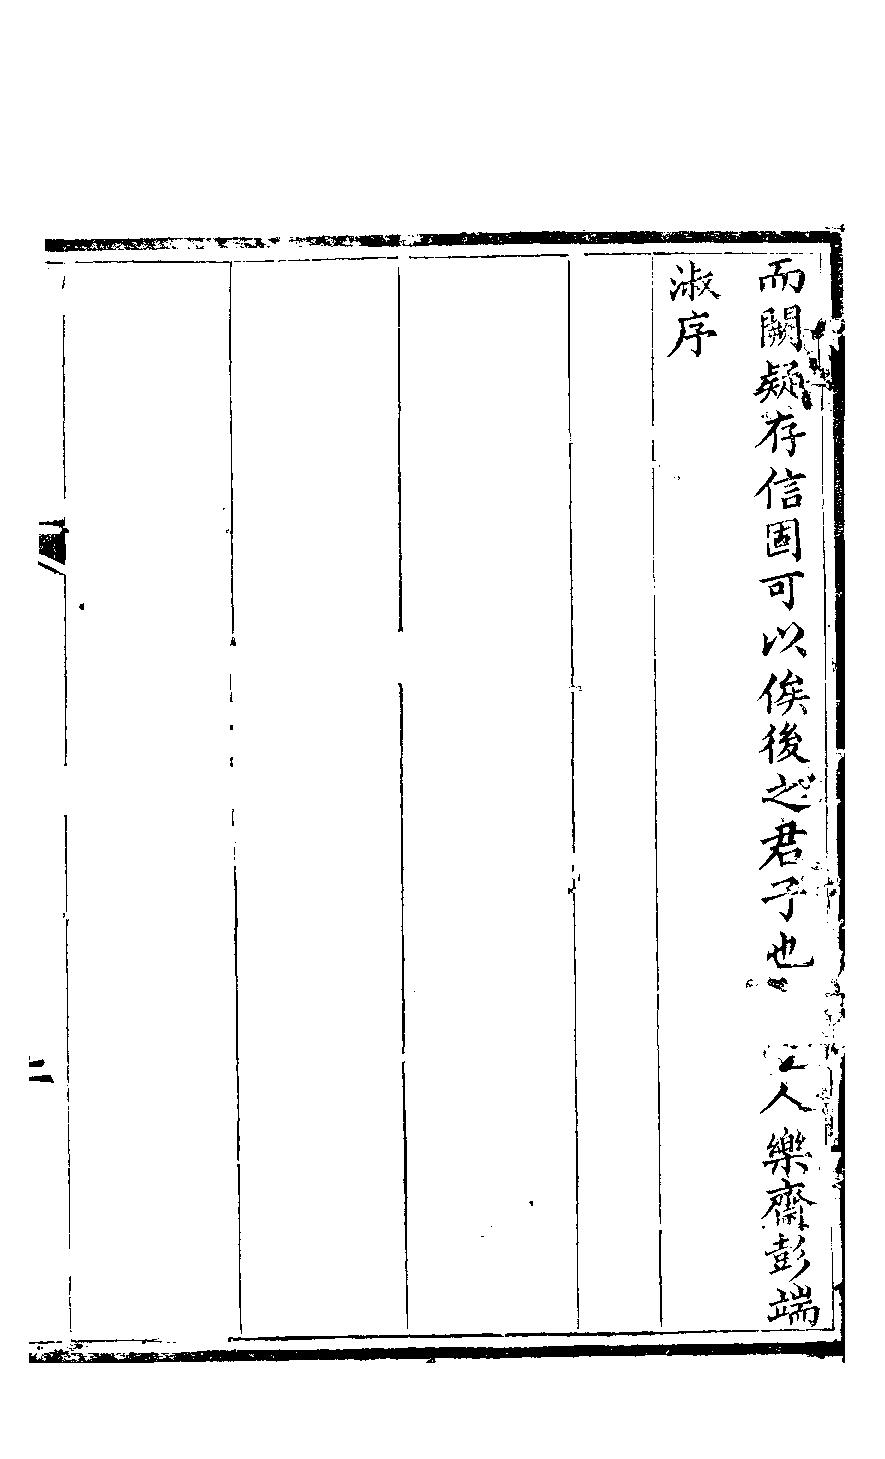 而闕疑存信固可以俟後之君子也　人樂齋彭端
淑序
二